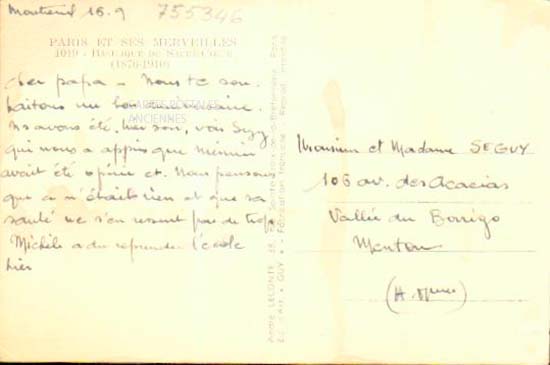 Montreuil 16.9
755346
PARIS ET SES MERVEILLES
1019 - Basilique du Sacré-Cœur
(1876-1910)
Cher papa - Nous te sou-
haitons un bon anniversaire.
CARTES POSTALES
ANCIENNES
Ns avons été, hier soir, voir Suzy
qui nous a appris que
avait été opéré et. Nous pensons
que ce n'était rien et que sa
santé ne s'en ressent pas de trop.
Michèle a du reprendre l'école
hier
André LECONTE, 38, Rue Sainte-Croix-de-la-Bretonnerie, Paris
Fabrication Française - Reprod. interdite
Monsieur et Madame SEGUY
106 av. des Acacias
Vallée du Borrigo
Menton
(A. Mmes)